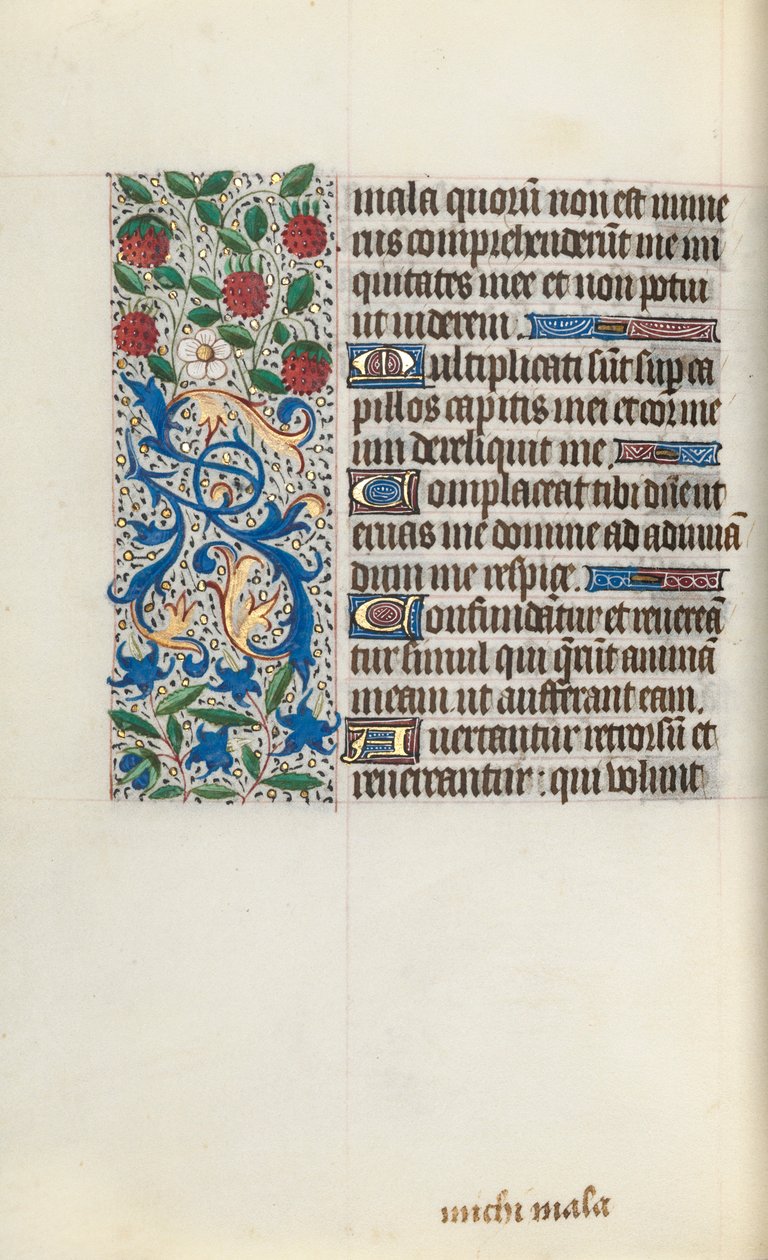 mala quorū non est nume
rus comprehenderūt me ini
quitates mee et non potui
ut uiderem.
Multiplicati sūt sup ca
pillos capitis mei et cor me
um dereliquit me.
Complaceat tibi dn̄e ut
eruas me domine ad adiuuā
dum me respice.
Confundātur et reuereā
tur simul qui q̄rūt animā
meam ut aufferant eam.
Auertantur retrorsū et
reuereantur: qui volunt
michi mala